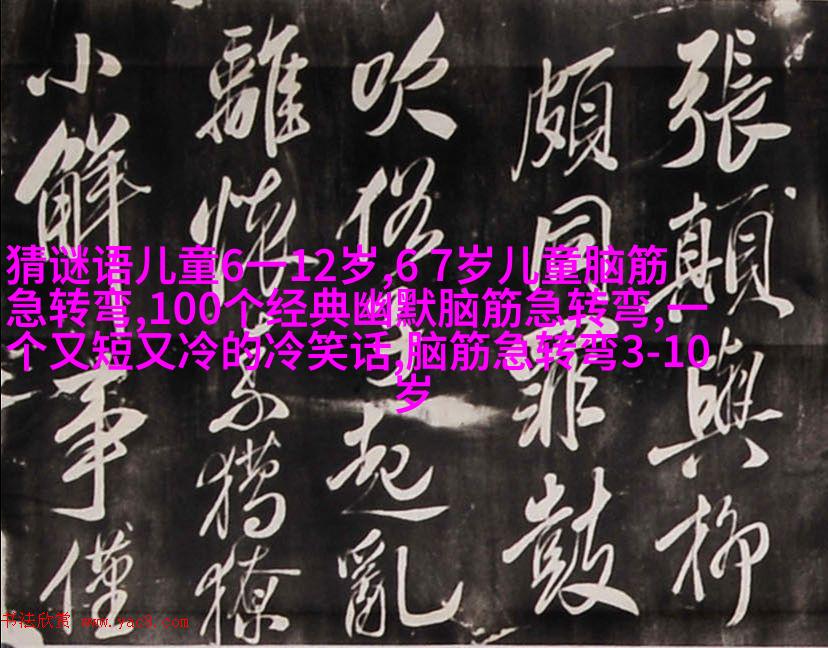 張顛與柳
頗同罪鼓
吹俗子起亂
離懷素獦獠
小解事僅
猜谜语儿童6一12岁,6 7岁儿童脑筋
急转弯,100个经典幽默脑筋急转弯,一
个又短又冷的冷笑话,脑筋急转弯3-10
岁
书法欣赏 www.yac8.com